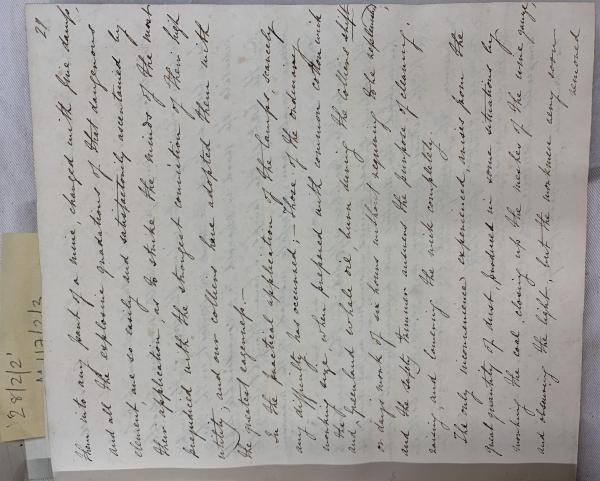 28
them into any part of a mine charged with fire damp,
and all the explosive gradations of that dangerous
element are so easily and satisfactorily ascertained by
their application, as to strike the minds of the most
prejudiced with the strongest conviction of their high
utility; and our colliers have adopted them with
the greatest eagerness.—
In the practical application of the lamps, scarcely
any difficulty has occurred;— Those of the ordinary
working size when prepared with common cotton wick
and the Greenland whale oil, burn during the colliers shift
or day's work of six hours without requiring to be replenished;
and the safety trimmer answers the purpose of cleaning,
raising, and lowering the wick completely.
The only inconvenience experienced, arises from the
great quantity of dust, produced in some situations by
working the coal, closing up the meshes of the wire gauze,
and obscuring the light, but the workmen very soon
removed
'28/2/2'
M 117/2/2